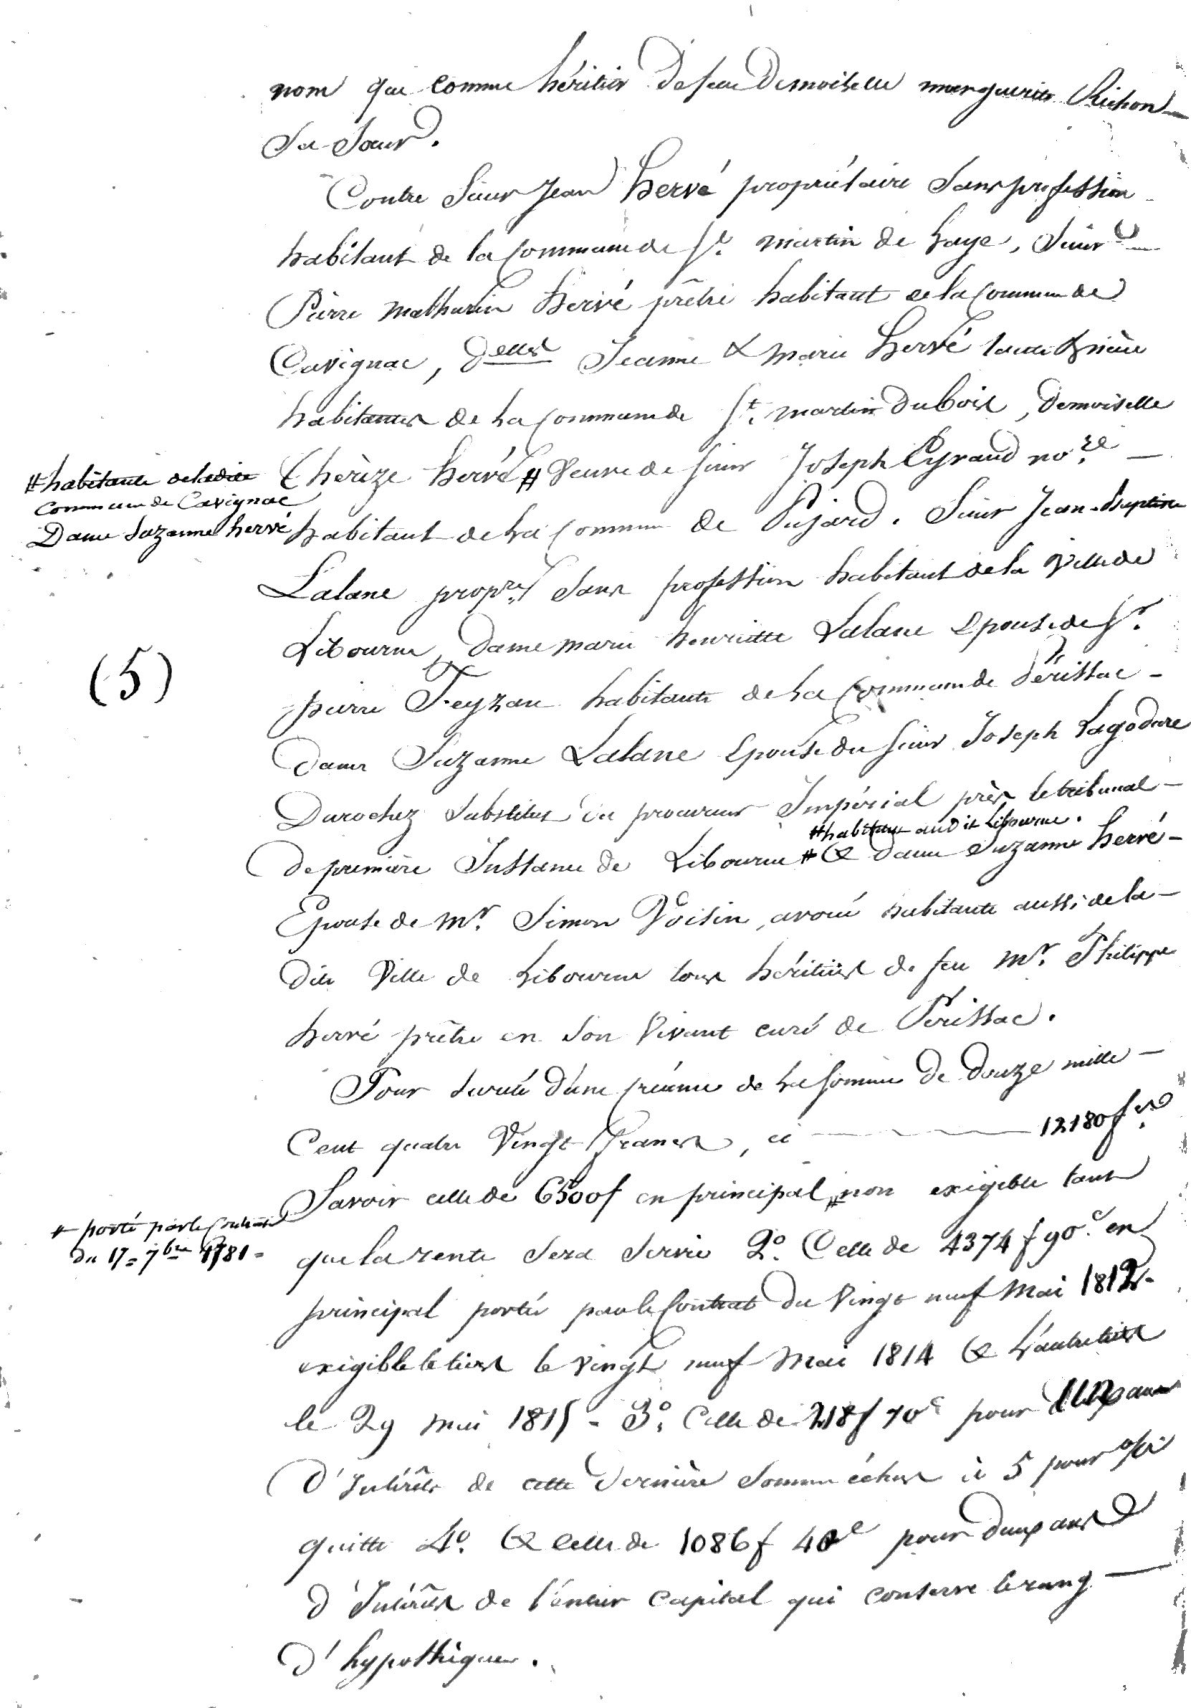 nom que comme héritier de feue Demoiselle marguerite Richon
Sa Sœur.
Contre Sieur Jean hervé propriétaire Sans profession
habitant de la Commune de St. martin de Laye, Sieur
Pierre mathurin hervé prêtre habitant de la Commune de
Cavignac, delles Jeanne & marie hervé
habitantes de la Commune de St. martin du Bois, demoiselle
#habitante de ladite
Commune de Cavignac
Dame Suzanne hervé
Thérèze hervé # Veuve de Sieur Joseph Eyraud no.re
habitant de la Commune de Pujard. Sieur Jean-Baptiste
Lalane propre. Sans profession habitant de la Ville de
Libourne, Dame marie henriette Lalane Epouse de Sr.
(5)
pierre Feyzau habitante de la Commune de Périssac
dame Suzanne Lalane Epouse du Sieur Joseph Lagodare
Durochez Substitut du procureur Impérial près le tribunal
#habitant audit Libourne.
de première Instance de Libourne # & dame Suzanne hervé
Epouse de Mr. Simon Voisin, avoué habitante aussi de la
dite Ville de Libourne tous héritiers de feu Mr. Philippe
hervé prêtre en Son Vivant curé de Périssac.
Pour Sureté d'une Créance de la Somme de douze mille
Cent quatre Vingt francs, ci 12180 f cs.
Savoir celle de 6500f en principal # non exigible tant
# porté par le Contrat
du 17 = 7bre 1781 =
que la rente Sera Servie 2o. Celle de 4374 f 90.c en
principal porté par le Contrat du Vingt neuf Mai 1812
exigible le tiers le Vingt neuf Mai 1814 & l'autre tiers
le 29 mai 1815 - 3o. Celle de 218f 70c pour un an
d'Intérêts de cette Dernière Somme échus à 5 pour
quitte 4o. & celle de 1086f 40c pour deux ans
d'Intérêts de l'entier Capital qui conserve le rang
d'hypothèques.